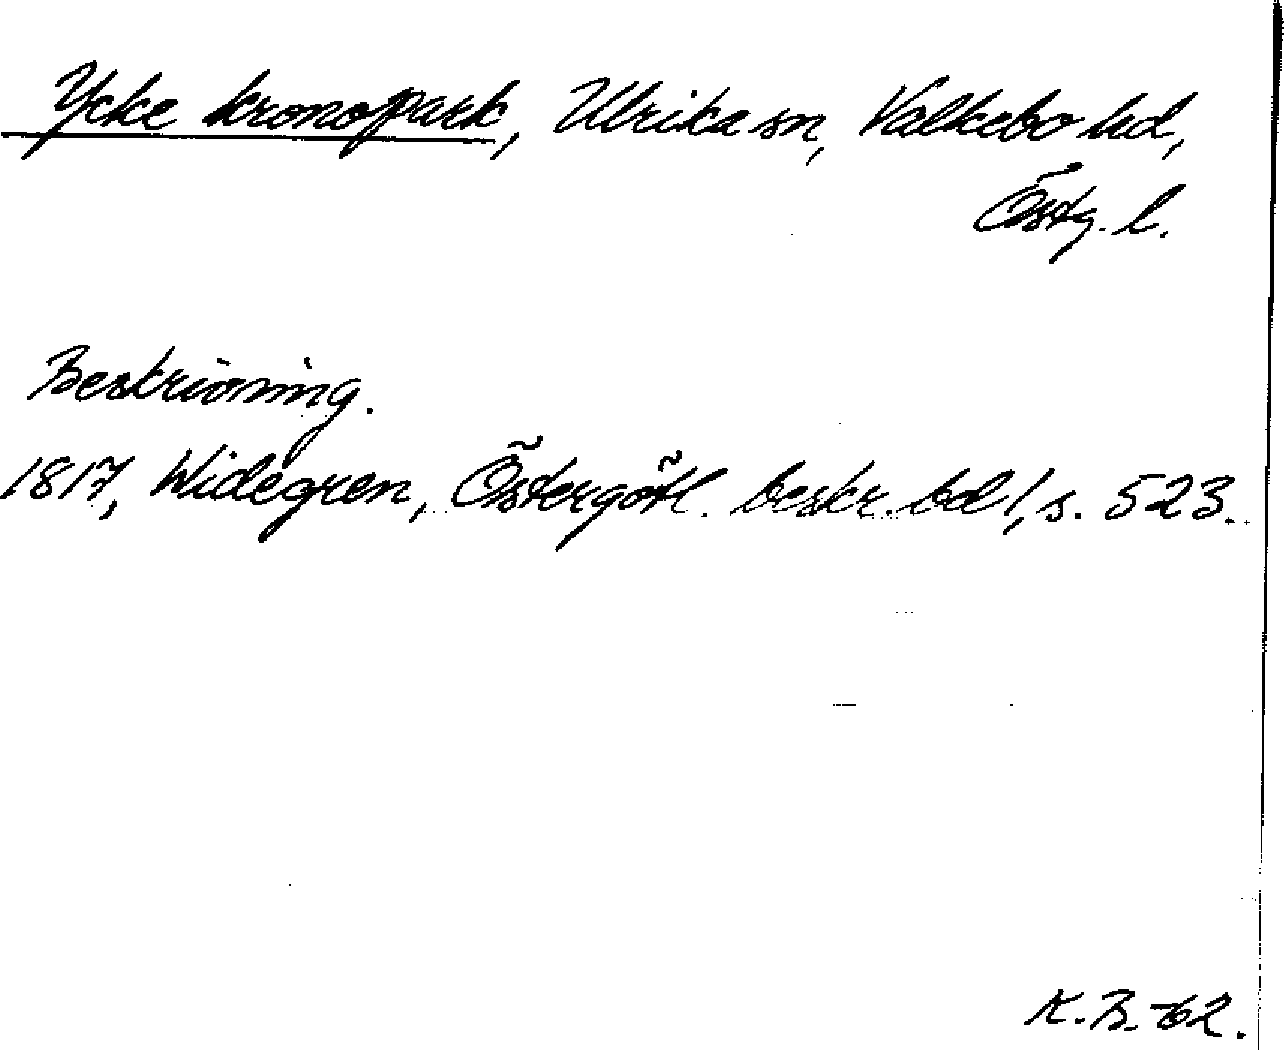 Ycke kronopark, Ulrika sn, Valkebo hd,
Östg. l.
Beskrivning.
1817, Widegren, Östergötl. beskr. bd 1, s. 523.
K.B.-62.